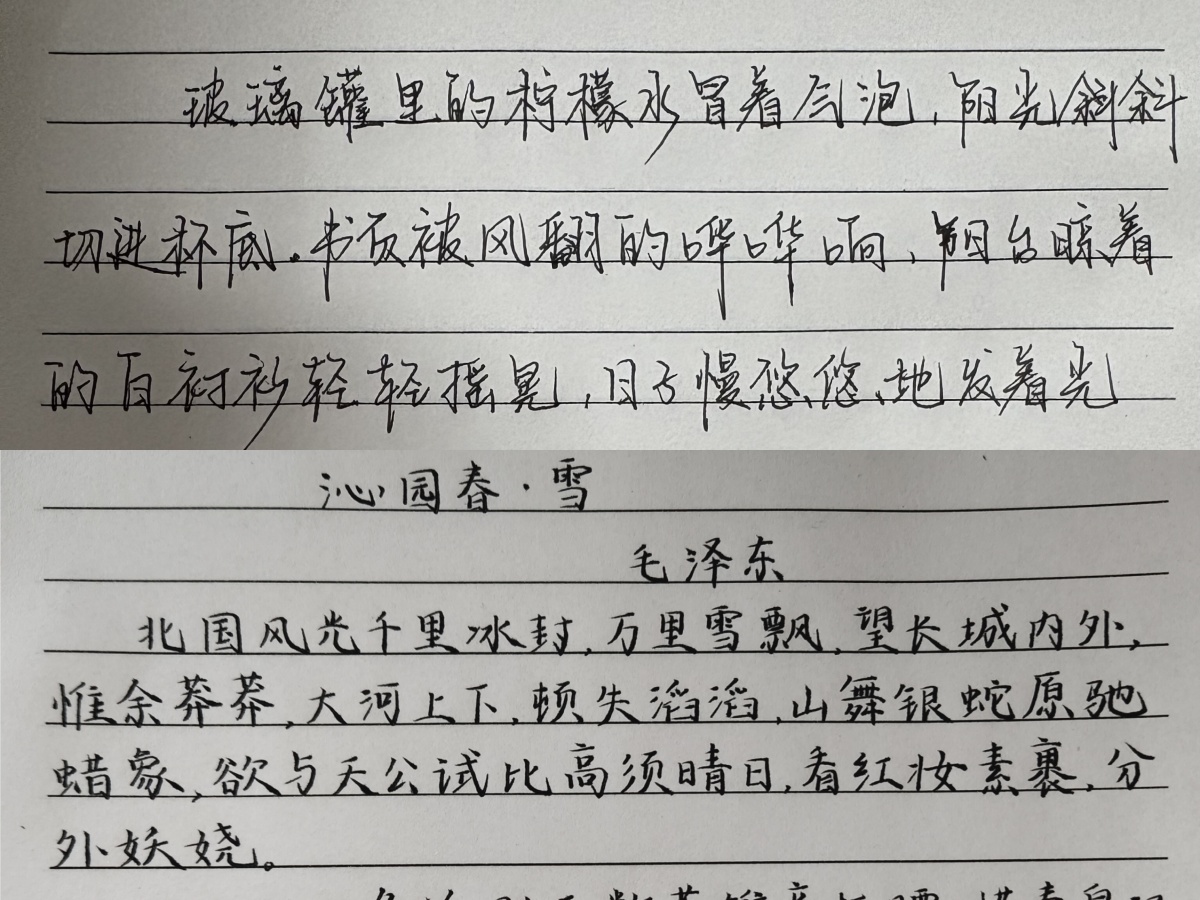 玻璃罐里的柠檬水冒着气泡，阳光斜斜
切进杯底。书页被风翻的哗哗响，阳台晾着
的白衬衫轻轻摇晃，日子慢悠悠地发着光
沁园春·雪
毛泽东
北国风光千里冰封，万里雪飘，望长城内外，
惟余莽莽，大河上下，顿失滔滔，山舞银蛇原驰
蜡象，欲与天公试比高须晴日，看红妆素裹，分
外妖娆。